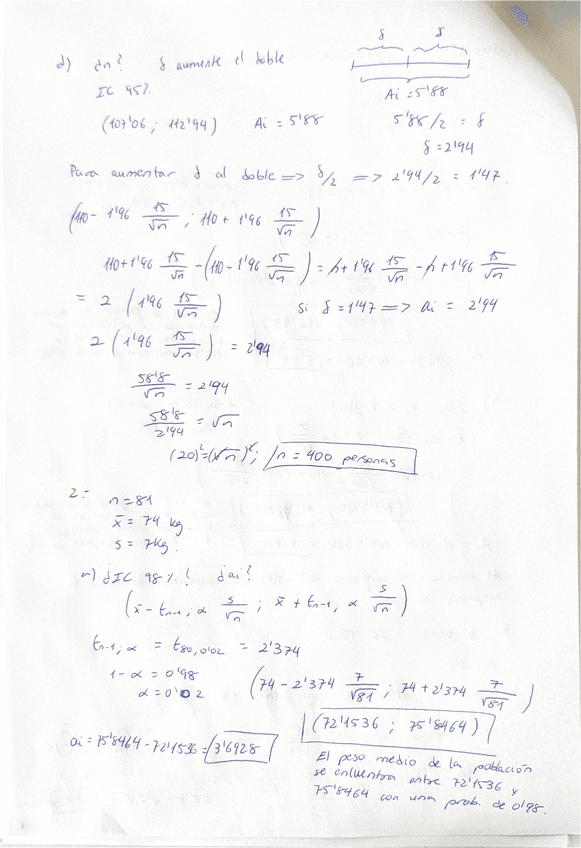 d) ¿n? δ aumente el doble
δ δ
IC 95%
Ai = 5'88
(107'06 ; 112'94) Ai = 5'88
5'88/2 = δ
δ = 2'94
Para aumentar δ al doble => δ/2 => 2'94/2 = 1'47.
(110 - 1'96 15/√n ; 110 + 1'96 15/√n)
110 + 1'96 15/√n - (110 - 1'96 15/√n) = μ + 1'96 15/√n - μ + 1'96 15/√n
= 2 (1'96 15/√n) si δ = 1'47 => ai = 2'94
2 (1'96 15/√n) = 2'94
58'8/√n = 2'94
58'8/2'94 = √n
(20)² = (√n)²; n = 400 personas
2.- n = 81
x̄ = 74 kg.
s = 7kg.
a) ¿IC 98%? ¿ai?
(x̄ - tn-1, α s/√n ; x̄ + tn-1, α s/√n)
tn-1, α = t80, 0'02 = 2'374
1 - α = 0'98
α = 0'02
(74 - 2'374 7/√81 ; 74 + 2'374 7/√81)
(72'1536 ; 75'8464)
ai = 75'8464 - 72'1536 = 3'6928
El peso medio de la población
se encuentra entre 72'1536 y
75'8464 con una prob. de 0'98.